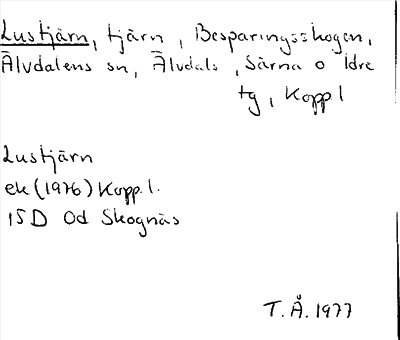 Lustjärn, tjärn, Besparingsskogen,
Älvdalens sn, Älvdals, Särna o Idre
tg, Kopp l
Lustjärn
ek (1976) Kopp. l.
15D Od Skognäs
T. Å. 1977